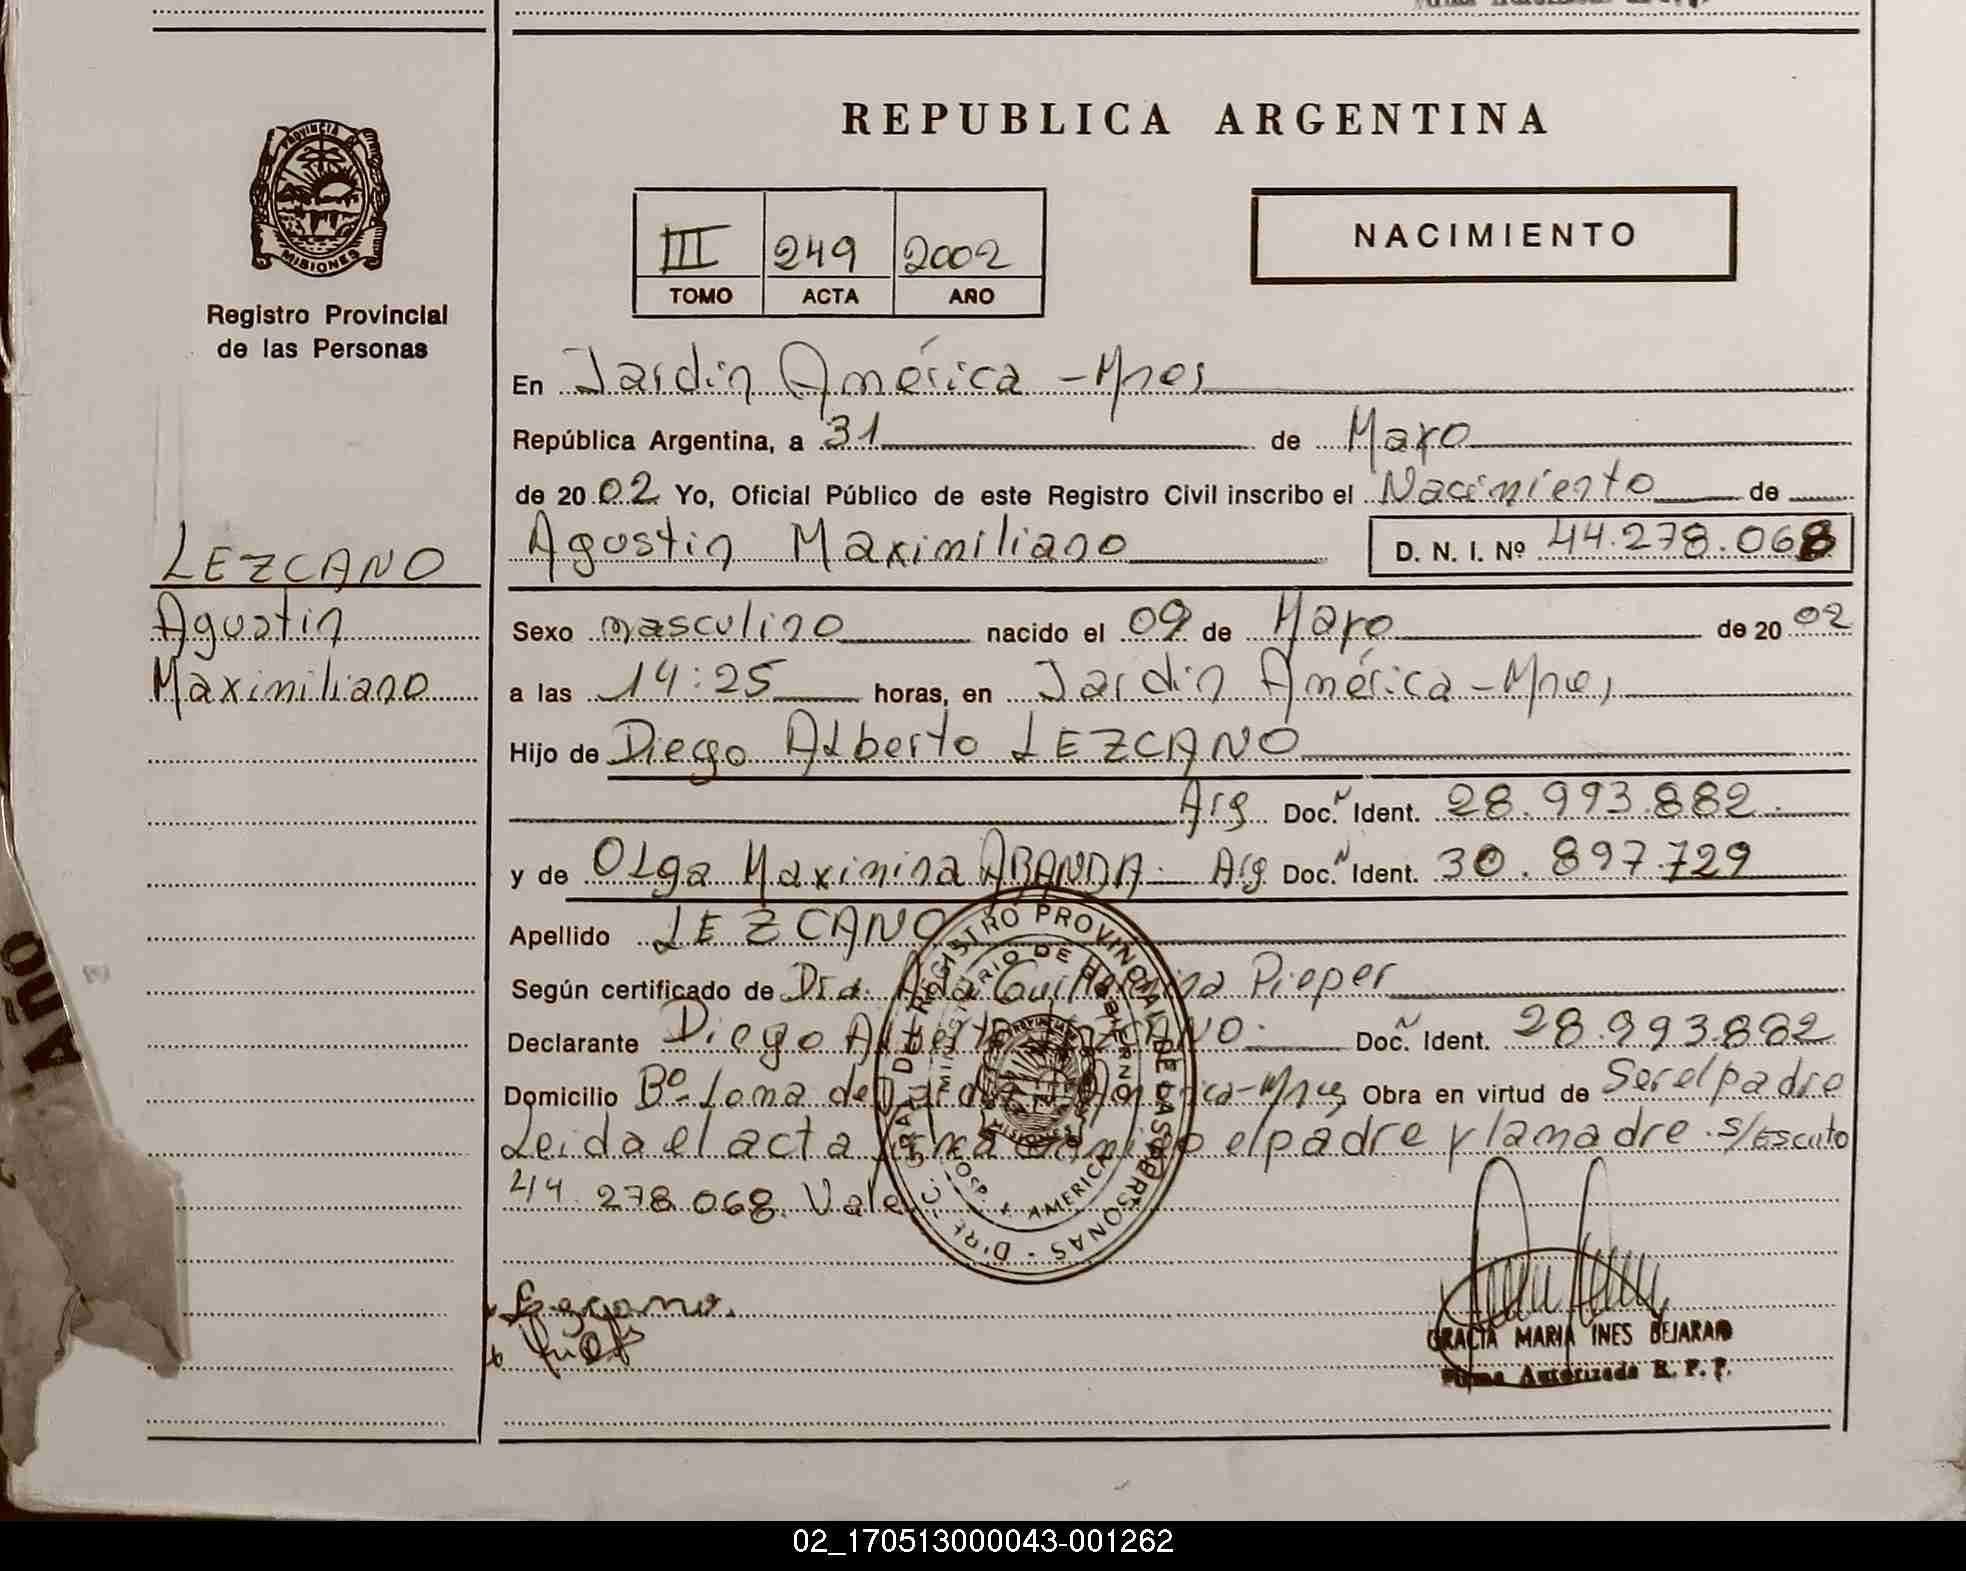 REPUBLICA ARGENTINA
PROVINCIA DE MISIONES
Registro Provincial
de las Personas
III 249 2002
TOMO ACTA AÑO
NACIMIENTO
En Jardín América - Mnes
República Argentina, a 31 de Mayo
de 2002 Yo, Oficial Público de este Registro Civil inscribo el Nacimiento de
LEZCANO
Agustin
Maximiliano
Agustin Maximiliano D. N. I. Nº 44.278.068
Sexo masculino nacido el 09 de Mayo de 2002
a las 14:25 horas, en Jardín América - Mnes,
Hijo de Diego Alberto LEZCANO
Arg Doc. Ident. 28.993.882.
y de Olga Maximina ABANDA. Arg Doc. Ident. 30.897.729
Apellido LEZCANO
Según certificado de Dra. Ada Guillermina Pieper
Declarante Diego Alberto LEZCANO. Doc. Ident. 28.993.882
Domicilio Bº Loma de Jardín América - Mnes Obra en virtud de Ser el padre
Leida el acta firma conmigo el padre y la madre. s/Escuto
44.278.068. Vale
REGISTRO PROVINCIAL DE LAS PERSONAS
MINISTERIO DE GOBIERNO
AMERICA
MISIONES
Lezcano.
GRACIA MARIA INES BEJARANO
Firma Autorizada R. P. P.
AÑO
02_170513000043-001262